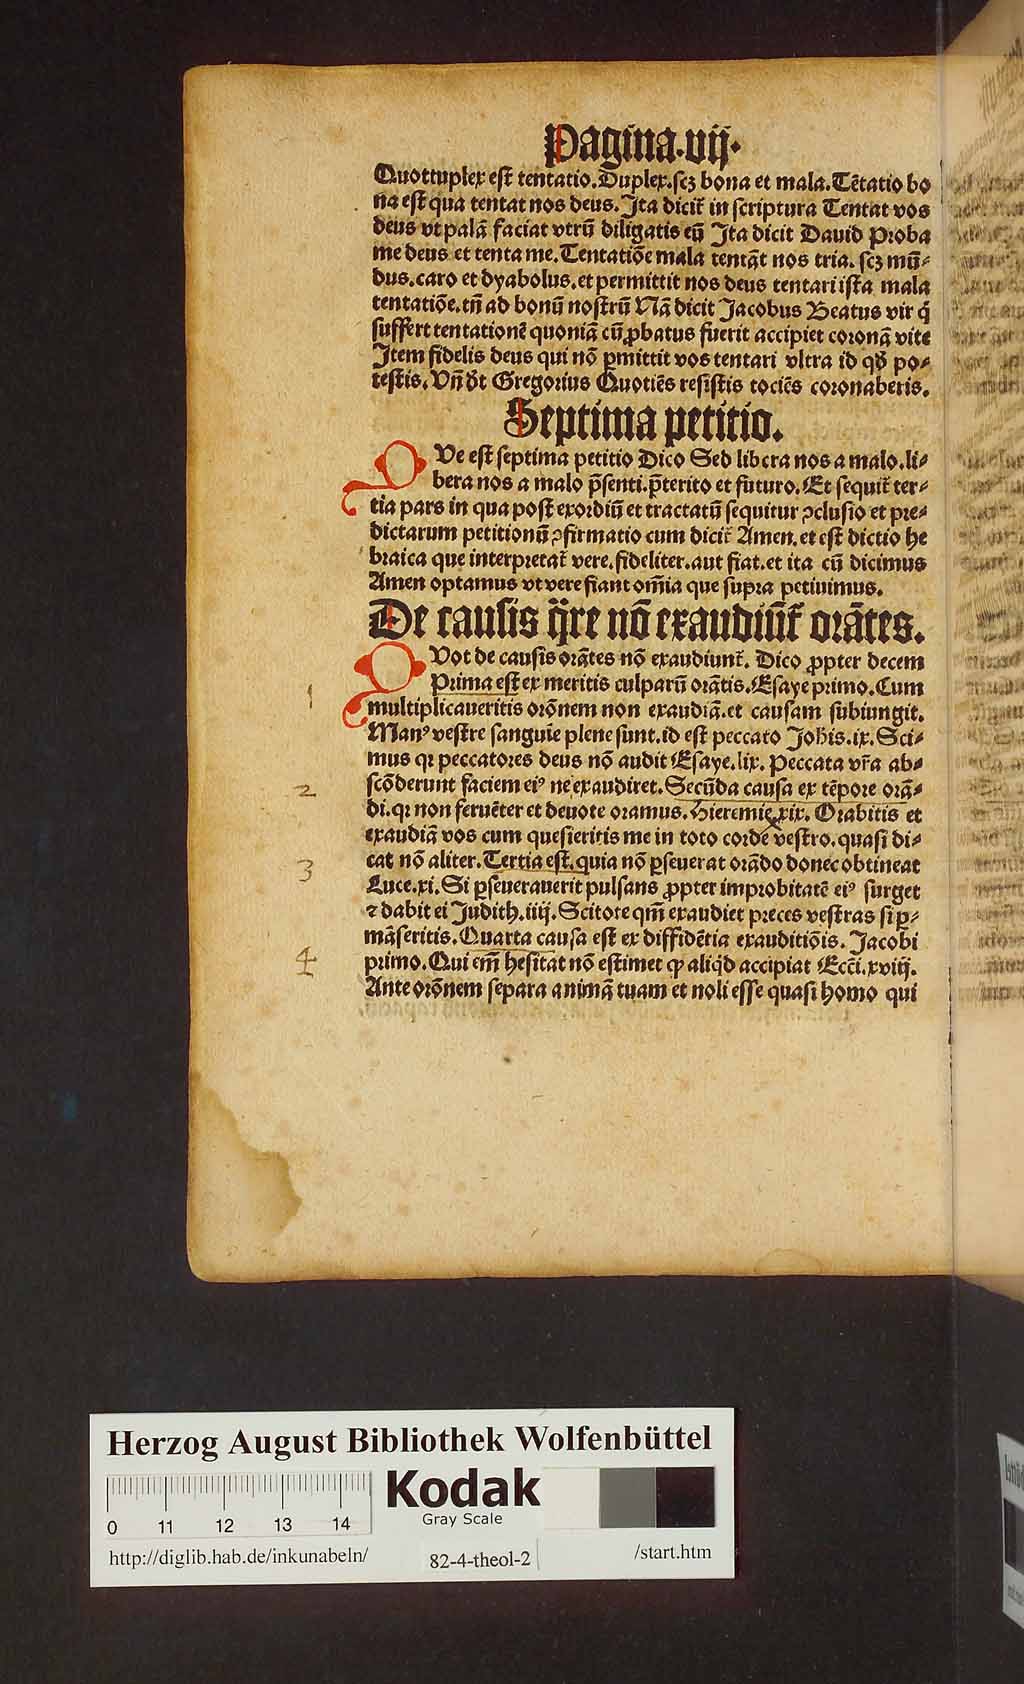 Pagina.vij.
Quottuplex est tentatio.Duplex.scz bona et mala.Tētatio bo
na est qua tentat nos deus. Ita dicit̄ in scriptura Tentat vos
deus vt palā faciat vtrū diligatis eū Ita dicit Dauid Proba
me deus et tenta me.Tentatiōe mala tentāt nos tria. scz mū-
dus.caro et dyabolus.et permittit nos deus tentari ista mala
tentatiōe.tn̄ ad bonū nostrū Nā dicit Jacobus Beatus vir q̄
suffert tentationē quoniā cū ꝓbatus fuerit accipiet coronā vite
Item fidelis deus qui nō ꝑmittit vos tentari vltra id qd̄ po-
testis. Vn̄ dt̄ Gregorius Quotiēs resistis tociēs coronaberis.
Septima petitio.
QVe est septima petitio Dico Sed libera nos a malo.li-
bera nos a malo p̄senti.p̄terito et futuro. Et sequit̄ ter-
tia pars in qua post exordiū et tractatū sequitur ꝯclusio et pre-
dictarum petitionū ꝯfirmatio cum dicit̄ Amen. et est dictio he
braica que interpretat̄ vere.fideliter.aut fiat.et ita cū dicimus
Amen optamus vt vere fiant om̄ia que supra petiuimus.
De causis q̄re nō exaudiūt̄ orātes.
QVot de causis orātes nō exaudiunt̄. Dico ꝓpter decem
Prima est ex meritis culparū orātis. Esaye primo. Cum
1
multiplicaueritis orōnem non exaudiā.et causam subiungit.
Manꝰ vestre sanguīe plene sunt.id est peccato Joh̄is.ix. Sci-
mus qꝛ peccatores deus nō audit Esaye.lix. Peccata vr̄a ab-
scōderunt faciem eiꝰ ne exaudiret. Secūda causa ex tēpore orā-
2
di.qꝛ non feruēter et deuote oramus. Hieremie.xix. Orabitis et
exaudiā vos cum quesieritis me in toto corde vestro. quasi di-
cat nō aliter. Tertia est. quia nō ꝑseuerat orādo donec obtineat
3
Luce.xi. Si ꝑseuerauerit pulsans ꝓpter improbitatē eiꝰ surget
⁊ dabit ei Judith.iiij. Scitote qm̄ exaudiet preces vestras si ꝑ-
māseritis. Quarta causa est ex diffidētia exauditiōis. Jacobi
4
primo. Qui em̄ hesitat nō estimet ꝙ aliqd̄ accipiat Ecc̄i.xviij.
Ante orōnem separa animā tuam et noli esse quasi homo qui
Herzog August Bibliothek Wolfenbüttel
Kodak
Gray Scale
0 11 12 13 14
http://diglib.hab.de/inkunabeln/ 82-4-theol-2 /start.htm